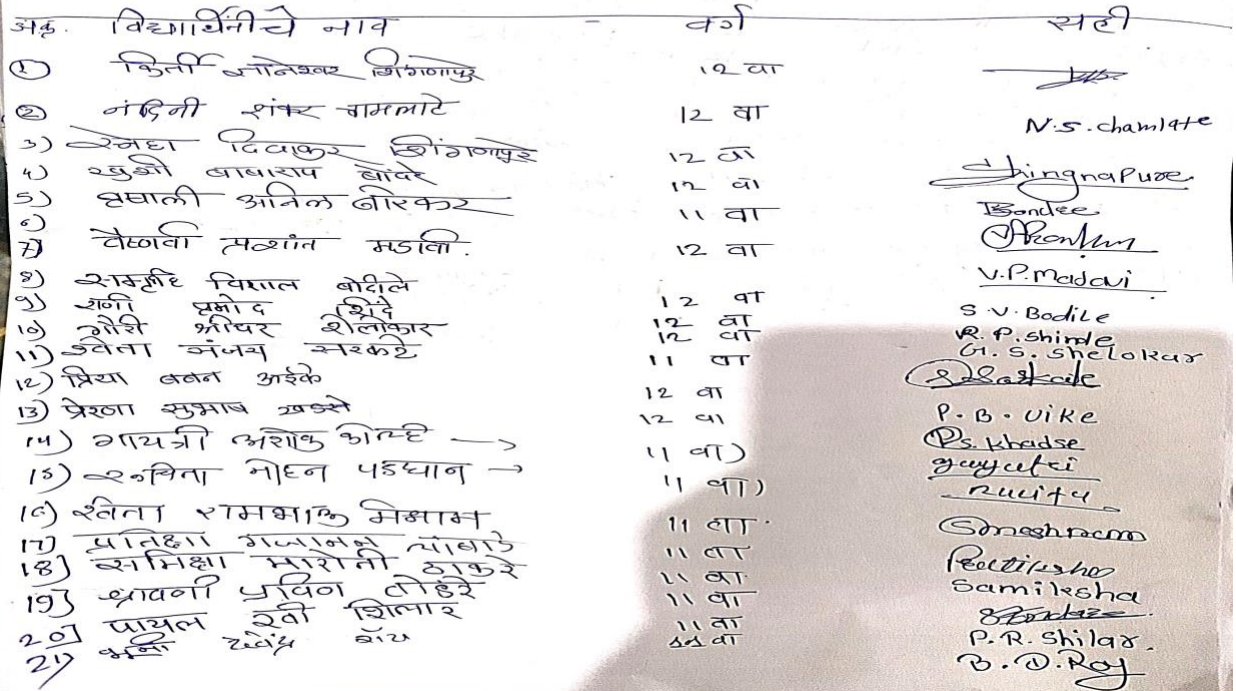 अक्र. विद्यार्थिनीचे नाव - वर्ग सही
① किर्ती ज्ञानेश्वर शिंगणापुरे 12 वा
② नंदिनी शंकर चामलाटे 12 वा N.S.chamlate
3) स्नेहा दिवाकर शिंगणापुरे 12 वा Shingnapure
4) खुशी बाबाराव बोंदरे 12 वा Bondre
5) अनिल 11 वा
6)
7) वैष्णवी प्रशांत मडावी. 12 वा V.P.Madavi
8) समृद्धि विशाल बोदीले 12 वा S.V.Bodile
9) राणी प्रमोद शिंदे 12 वा R.P.Shinde
10) गौरी श्रीधर शेलोकार 12 वा G.S.Shelokar
11) श्वेता संजय सरकटे 11 वा SSarkate
12) प्रिया बबन अईके 12 वा P.B.Uike
13) प्रेरणा सुभाष खडसे 12 वा Ps.Khadse
14) गायत्री अशोक कोल्हे → 11 वा) gayatri
15) रुचिता मोहन पडधान → 11 वा) Rucita
16) श्वेता रामभाऊ मेश्राम 11 वा. Smeshram
17) प्रतिक्षा गजानन 11 वा Pratiksha
18] समिक्षा मारोती ठाकरे 11 वा Samiksha
19] श्रावणी प्रविण तोडरे 11 वा
20] पायल रवी शिलार 11 वा P.R.Shilar.
21) देवेंद्र रॉय 11 वा B.D.Roy